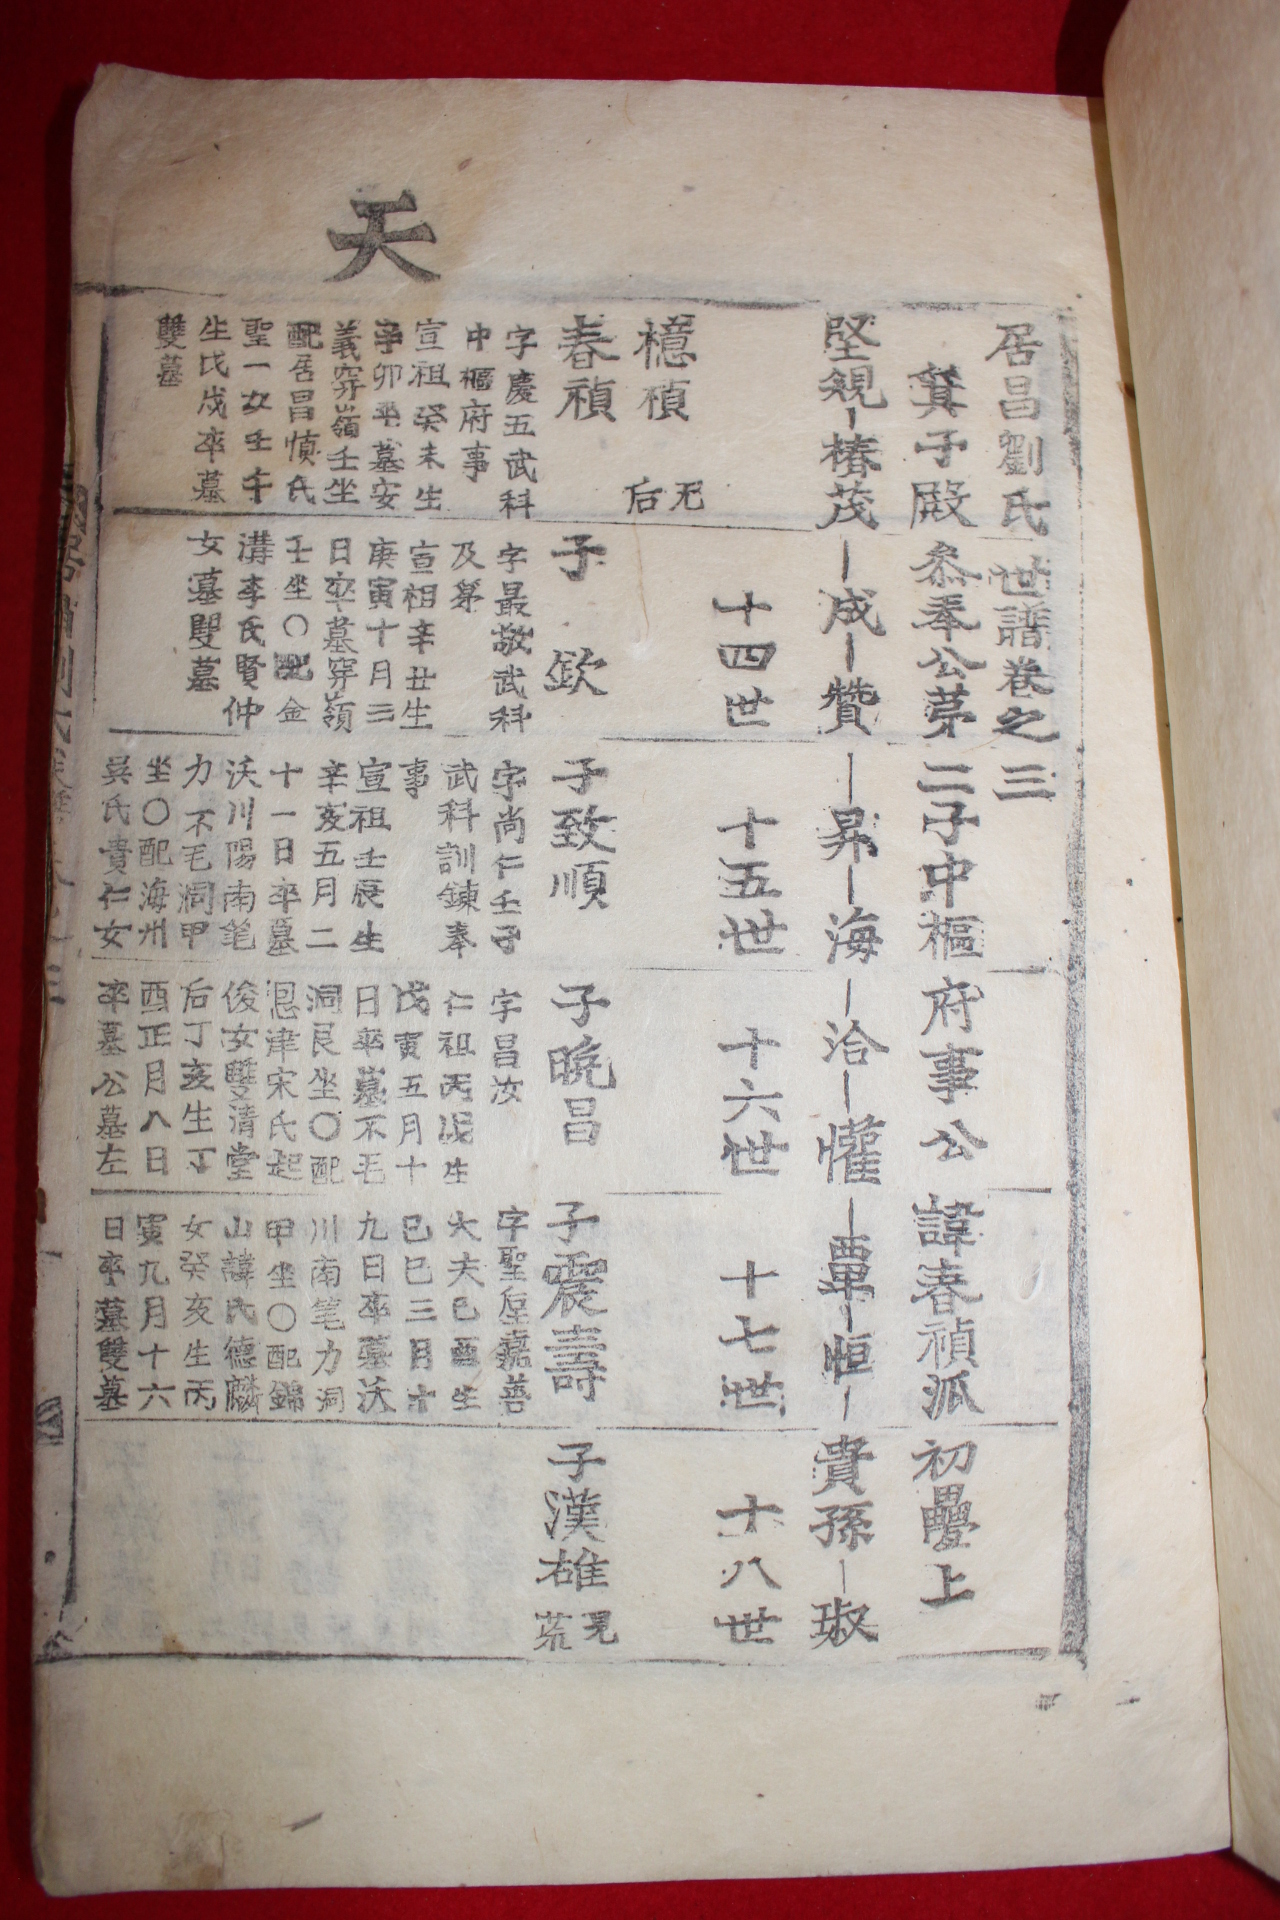 天
居昌劉氏世譜卷之三
箕子殿叅奉公苐二子中樞府事公諱春禎派 初疊上
堅規-椿茂-成-贊-昇-海-洽-懽-覃-恒-貴孫-琡
十四世
十五世
十六世
十七世
十八世
檍禎 无后
春禎
字慶五武科
中樞府事
宣祖癸未生
辛卯卒墓安
義穽嶺壬坐
配居昌愼氏
聖一女壬午
生戊戌卒墓
雙墓
子 欽
字最敬武科
及苐
宣祖辛丑生
庚寅十月三
日卒墓穽嶺
壬坐〇配金
溝李氏賢仲
女墓雙墓
子致順
字尙仁壬子
武科訓鍊奉
事
宣祖壬辰生
辛亥五月二
十一日卒墓
沃川陽南笔
力不毛洞甲
坐〇配海州
吳氏貴仁女
子晩昌
字昌汝
仁祖丙戌生
戊寅五月十
日卒墓不毛
洞艮坐〇配
恩津宋氏起
俊女雙清堂
后丁亥生丁
酉正月八日
卒墓公墓左
子震壽
字聖垕嘉善
大夫己酉生
己巳三月十
九日卒墓沃
川南笔力洞
甲坐〇配錦
山諱氏德麟
女癸亥生丙
寅九月十六
日卒墓雙墓
子漢雄 見荒